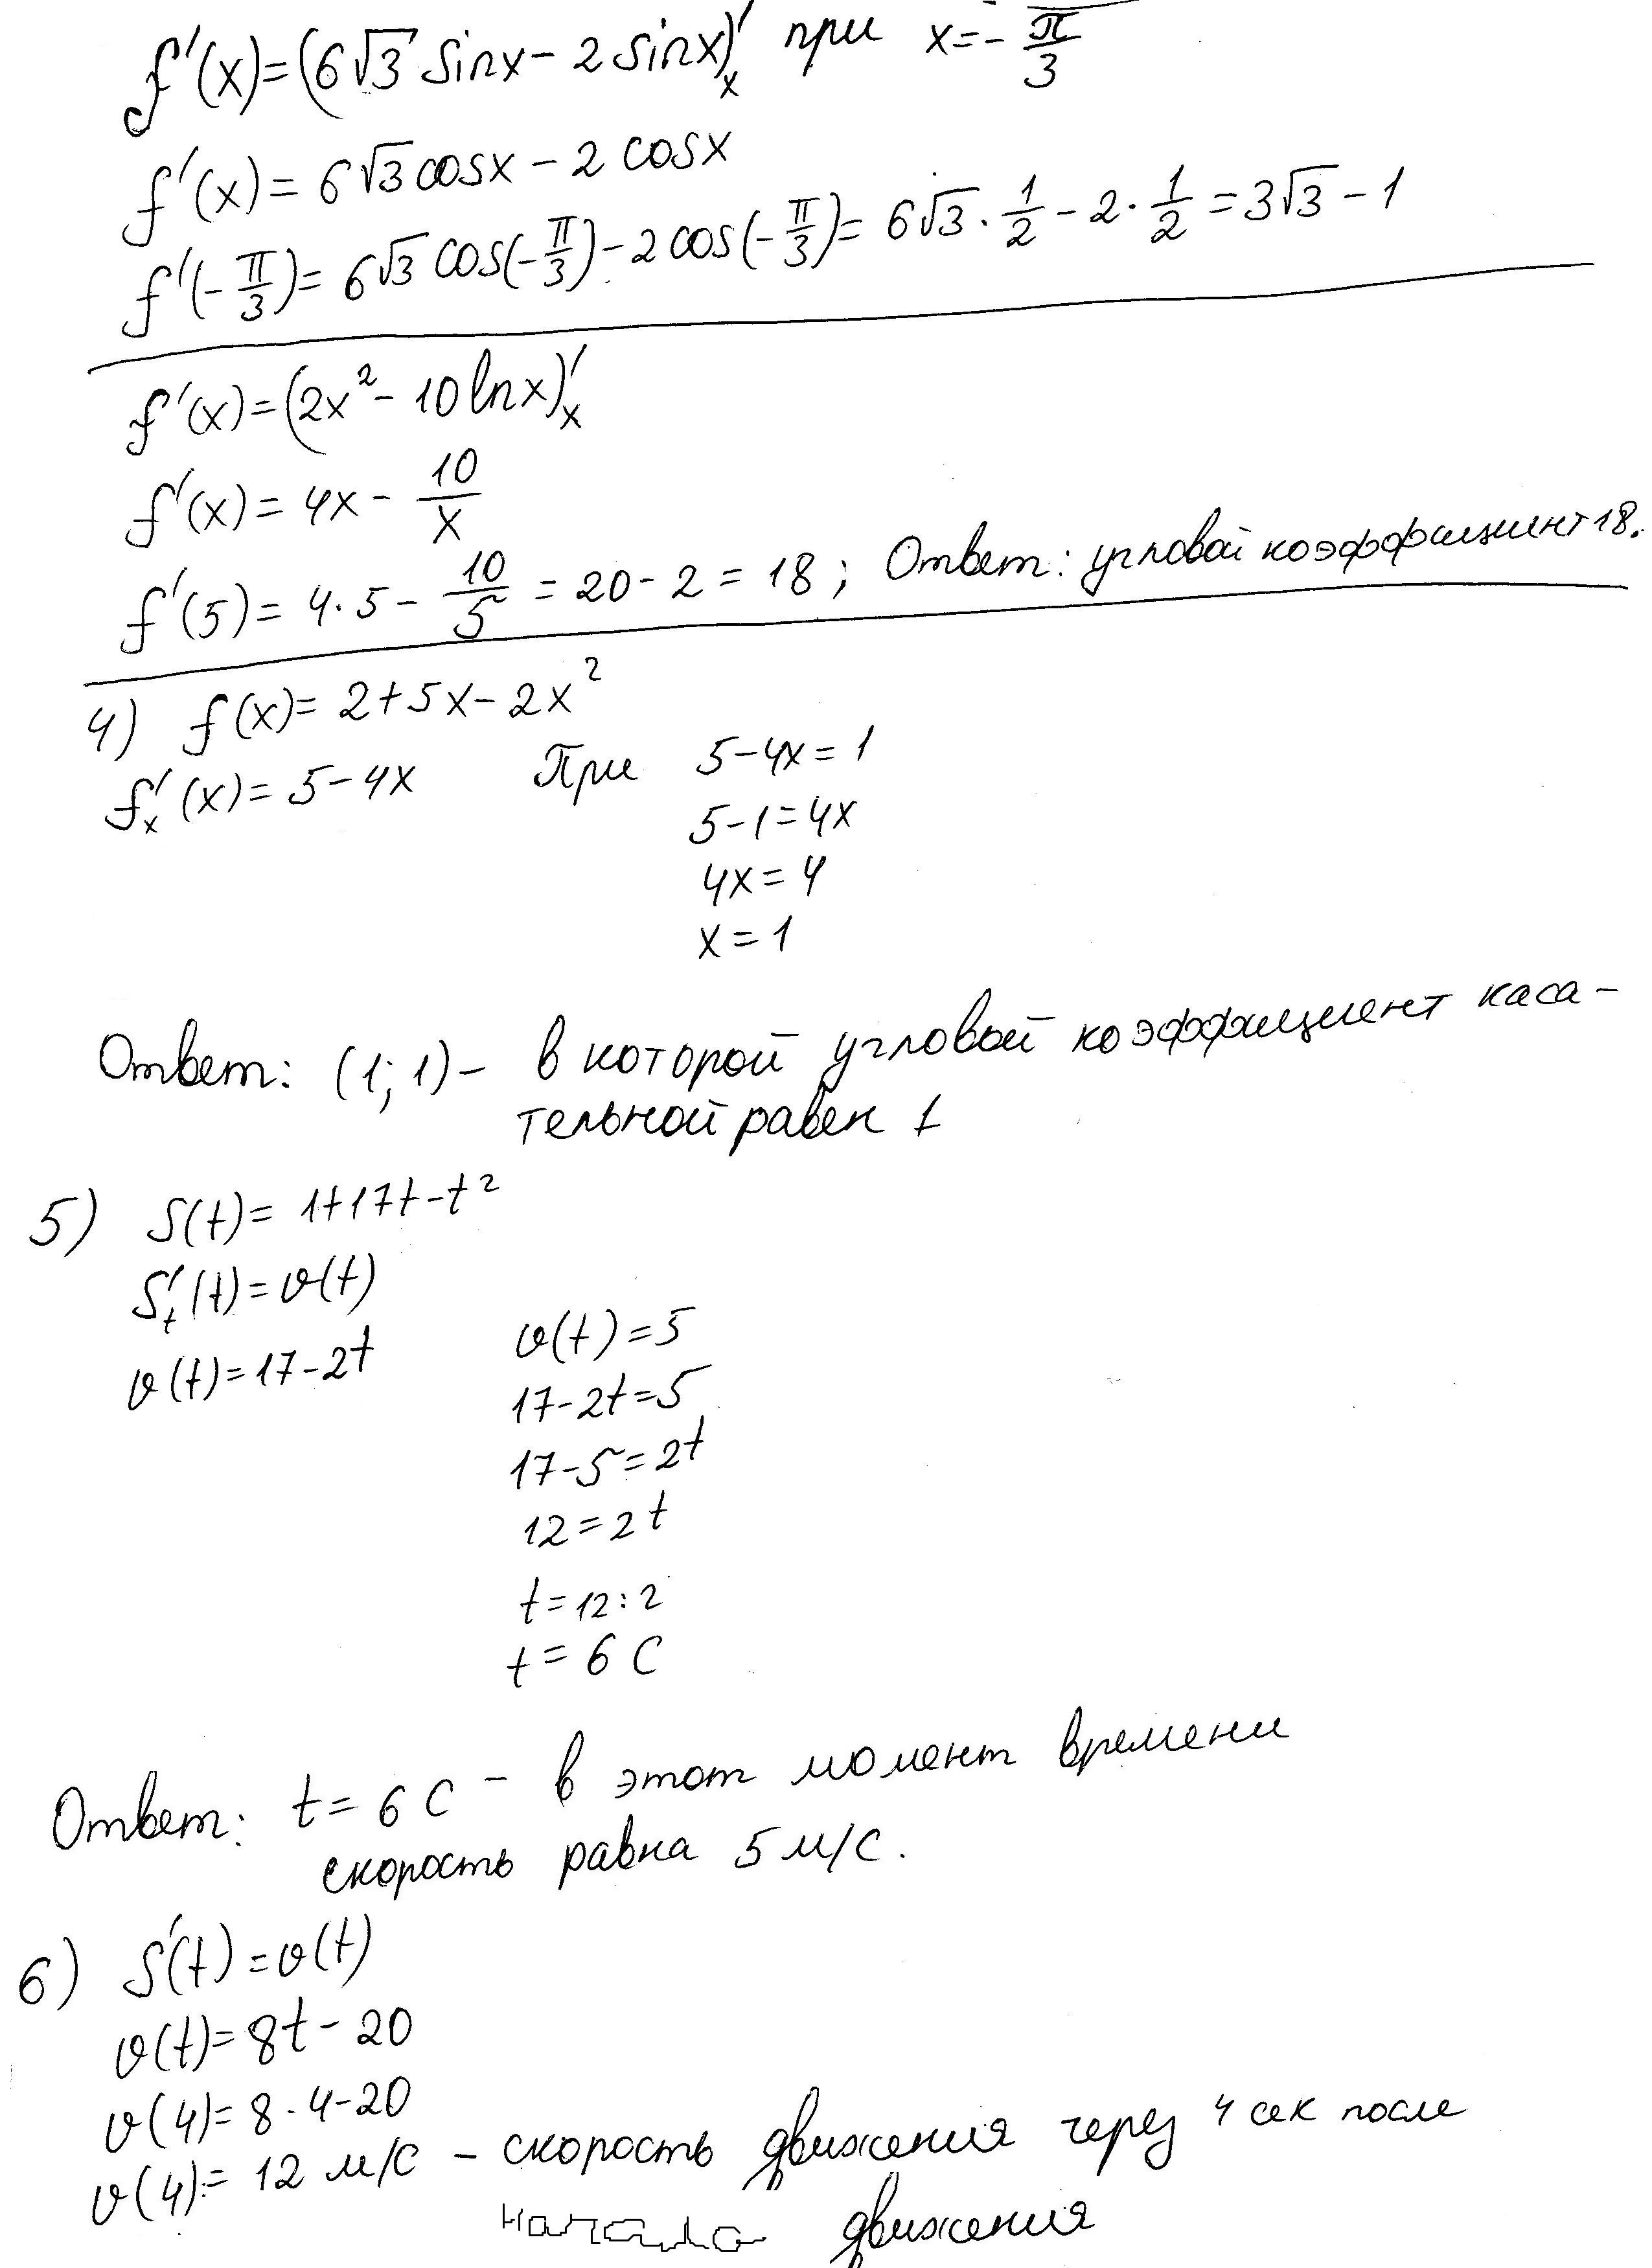 f'(x)=(6√3 sinx − 2 sinx)'ₓ при x=−π/3
f'(x)= 6√3 cosx − 2 cosx
f'(−π/3)= 6√3 cos(−π/3)−2 cos(−π/3)= 6√3·1/2−2·1/2=3√3−1
f'(x)=(2x²−10lnx)'ₓ
f'(x)=4x−10/x
f'(5)=4·5−10/5=20−2=18; Ответ: угловой коэффициент 18.
4) f(x)=2+5x−2x²
f'ₓ(x)=5−4x При 5−4x=1
5−1=4x
4x=4
x=1
Ответ: (1;1)− в которой угловой коэффициент каса-
тельной равен 1
5) S(t)=1+17t−t²
S'ₜ(t)=υ(t)
υ(t)=17−2t υ(t)=5
17−2t=5
17−5=2t
12=2t
t=12:2
t=6 С
Ответ: t=6 С − в этот момент времени
скорость равна 5 м/с.
6) S'(t)=υ(t)
υ(t)=8t−20
υ(4)=8·4−20
υ(4)=12 м/с − скорость движения через 4 сек после
начала движения